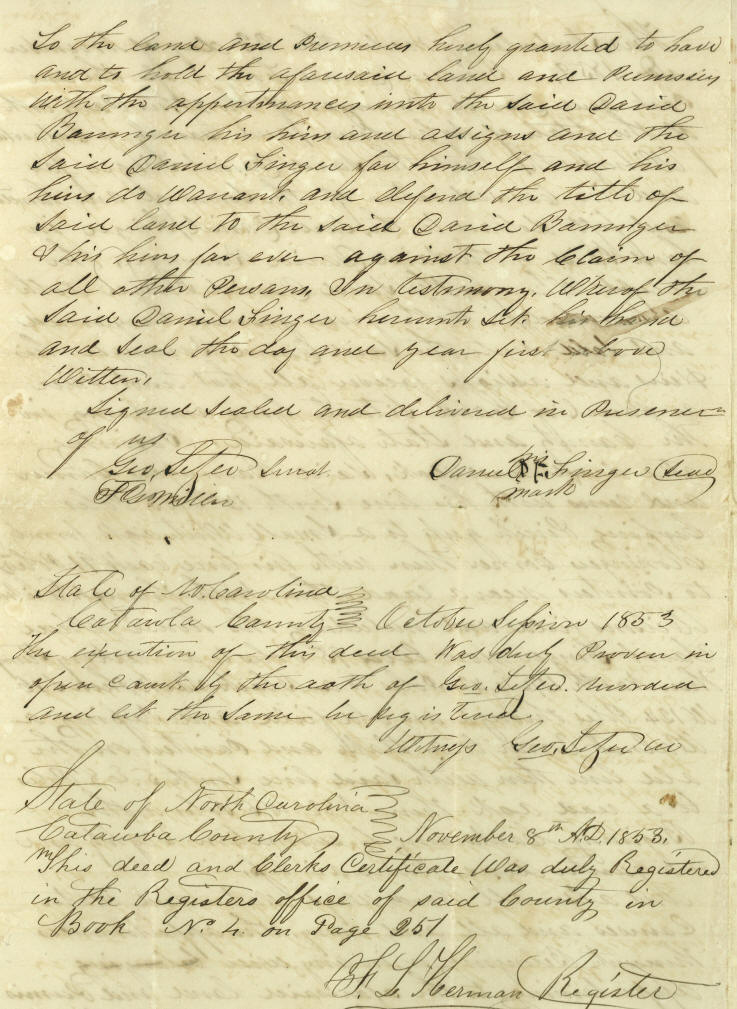 To the land and Premices herely granted to have
and to hold the afaresaid land and Premises
with the appertinances unto the said David
Barringer his hirs and assigns and the
Said Daniel Finger for himself and his
hirs do Warant. and defend the title of
said land to the said David Barringer
& his hirs for ever against the Claim of
all other Persans, In testimony, Wherof the
Said Daniel Finger hereunto Set his hand
and Seal the day and year first above
Witten,
Signed Sealed and delivered in Presence
of us
Geo, Setzer Jurat. Daniel his Finger Seal
mark
State of No. Carolina
Catawba County October Session 1853
The execution of this deed Was duly Proven in
open Court. by the oath of Geo. Setzer. recorded
and let the Same be registered
Witness Geo. Setzer CC
State of North Carolina
Catawba County November 8th A.D. 1853.
This deed and Clerks Certificate Was duly Registered
in the Registers office of said County in
Book No. 4. on Page 251
F. L. Herman Register